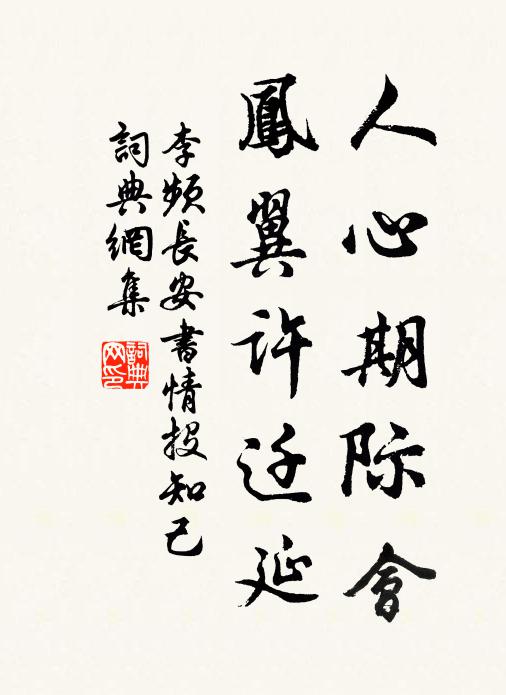 人心期际會
鳳翼許迁延
李頻長安書情投知己
詞典網集
詞典网印